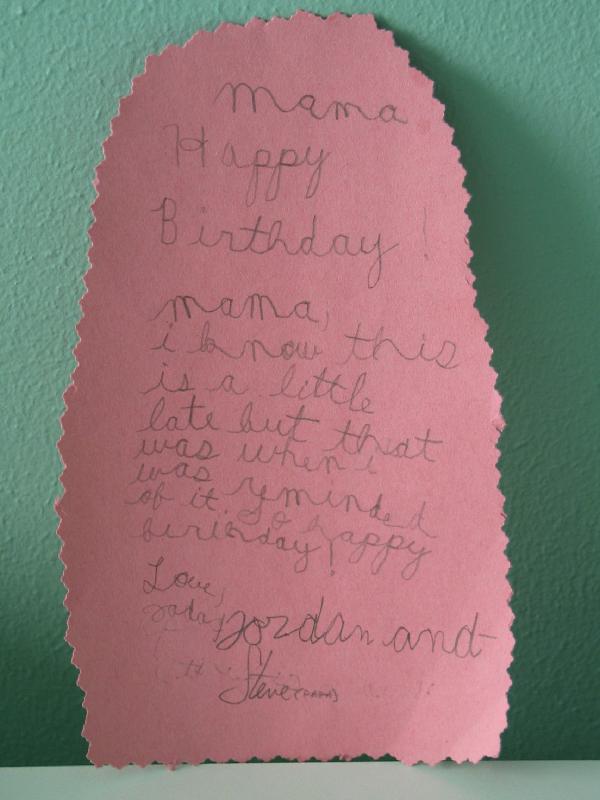 mama
Happy
Birthday!
mama,
i know this
is a little
late but that
was when i
was reminded
of it. So happy
birthday!
Love,
Jordan and
Steve (PAPA)